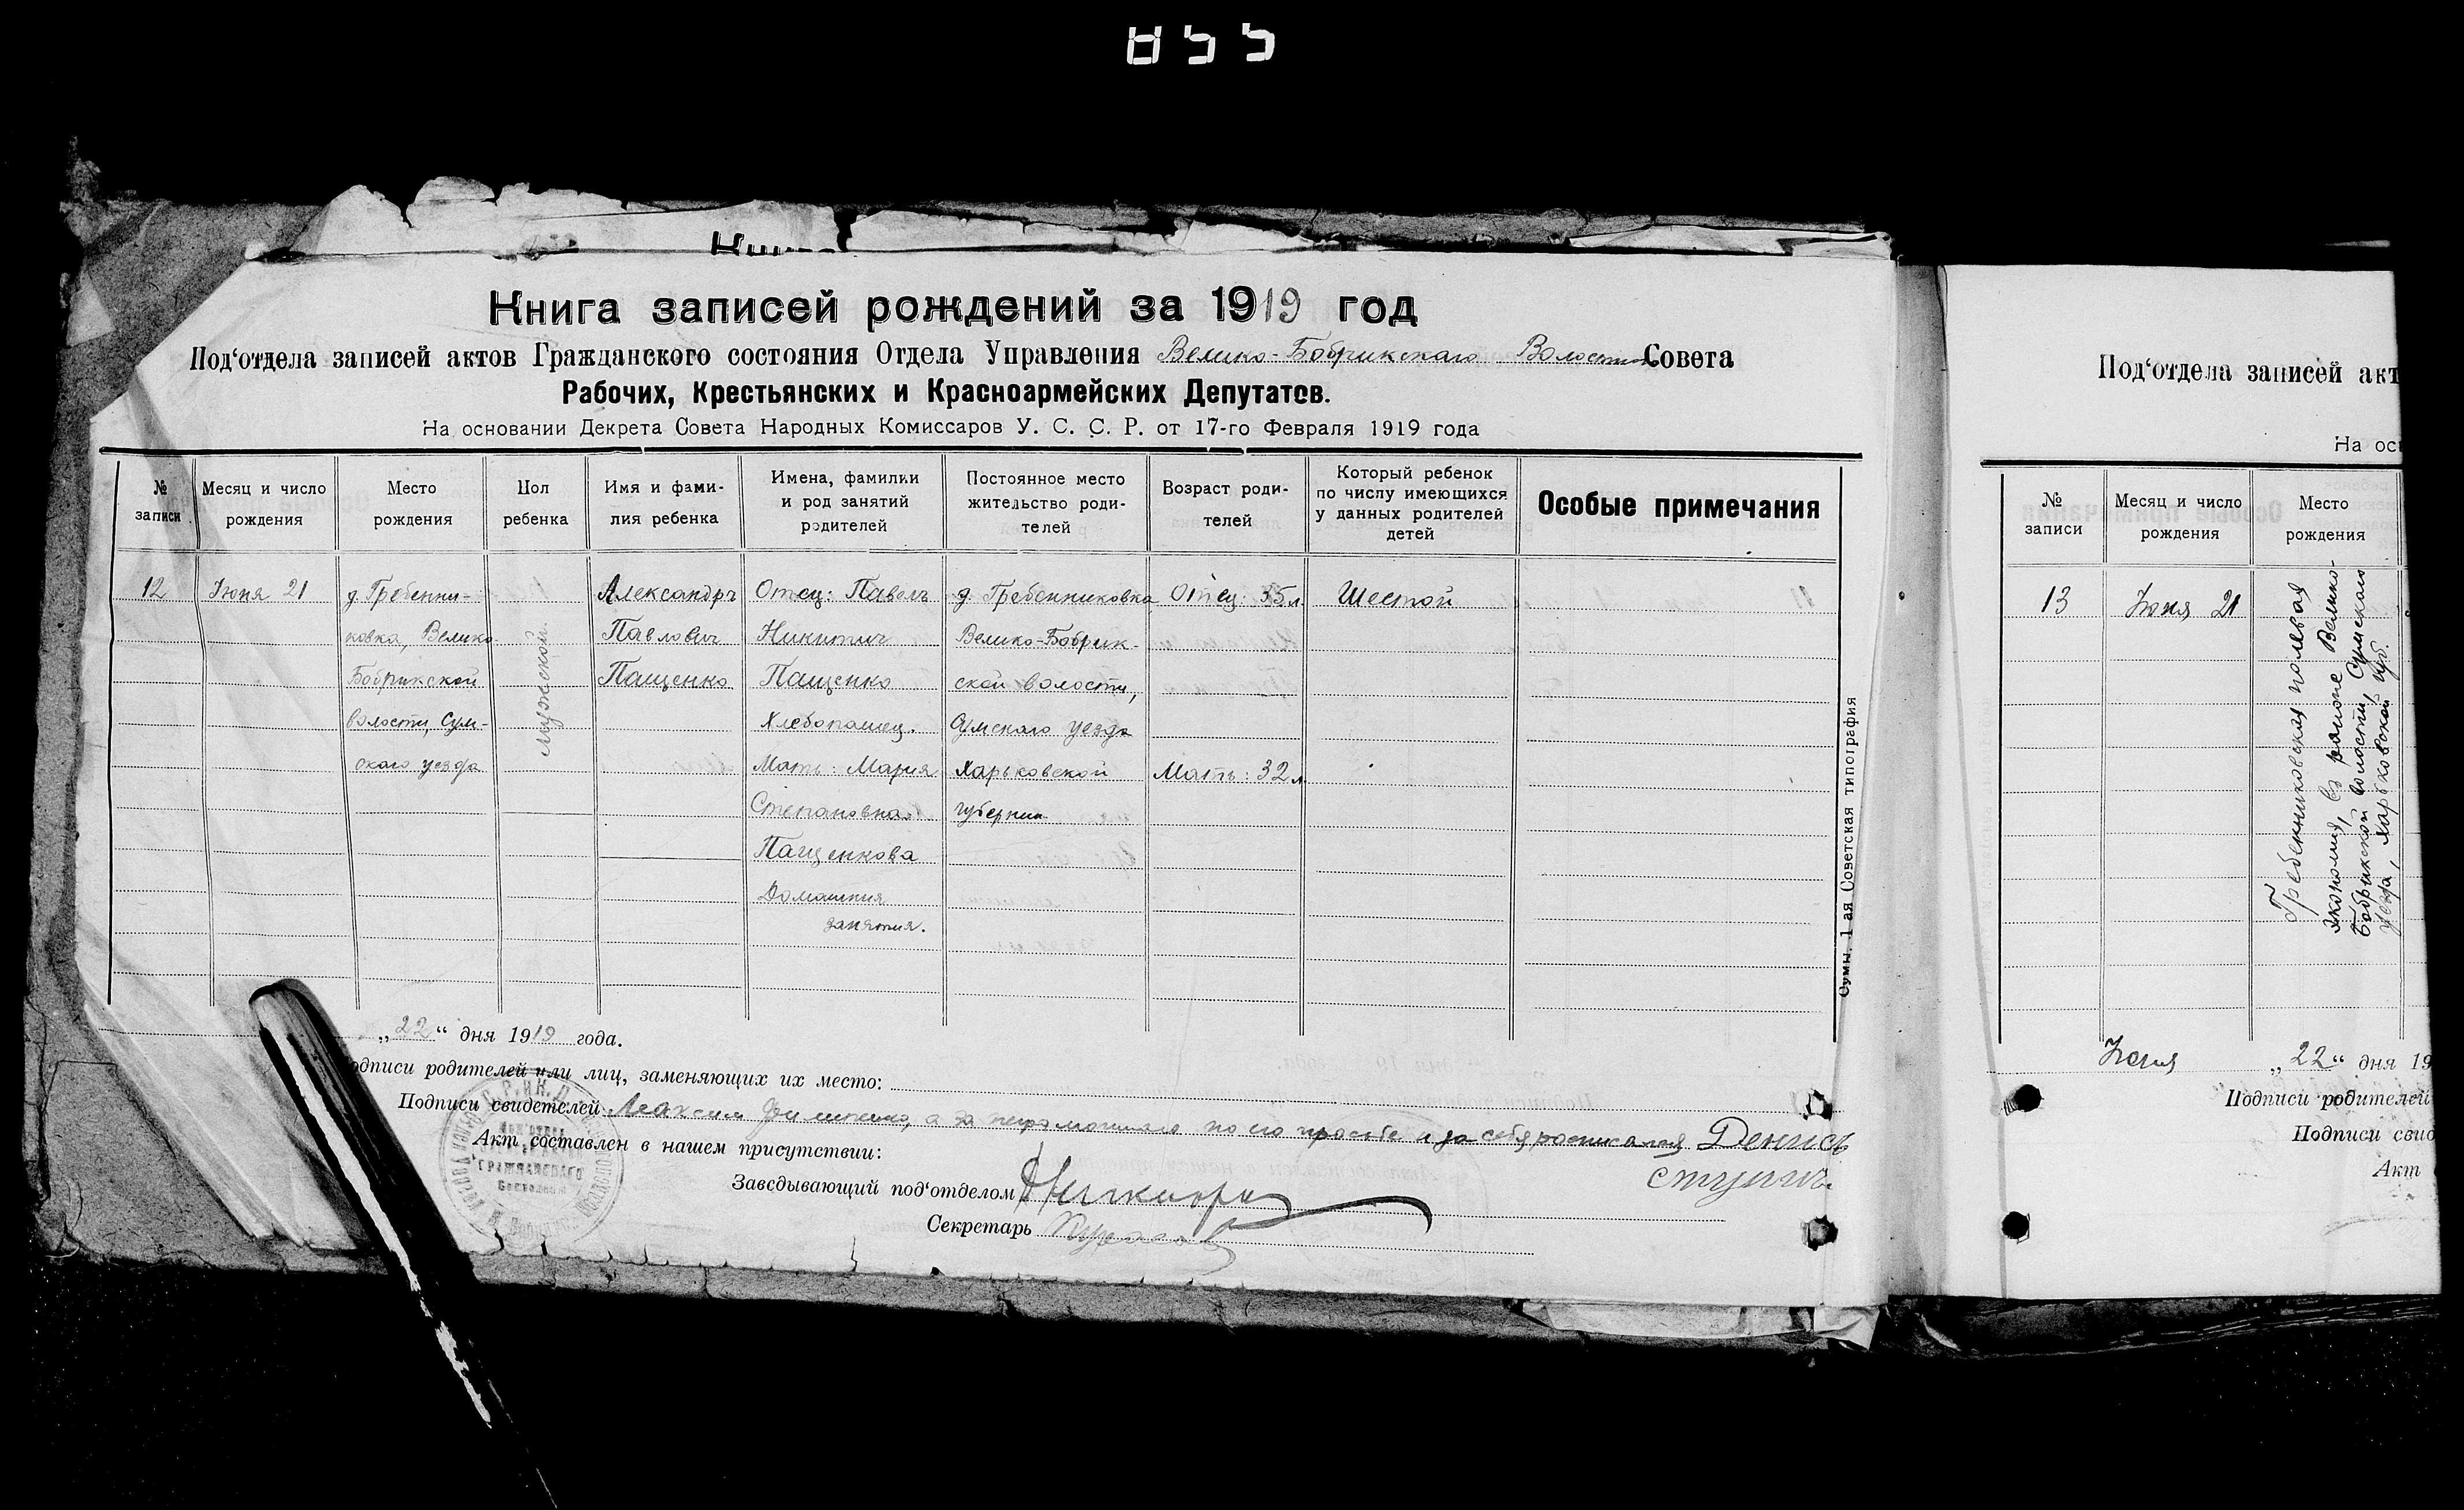 855
Книга записей рождений за 1919 год
Под‘отдела записей актов Гражданского состояния Отдела Управления Велико-Бобрикскаго Волостн Совета
Рабочих, Крестьянских и Красноармейских Депутатов.
На основании Декрета Совета Народных Комиссаров У. С. С. Р. от 17-го Февраля 1919 года
№ записи
Месяц и число рождения
Место рождения
Пол ребенка
Имя и фами-
лия ребенка
Имена, фамилии
и род занятий
родителей
Постоянное место
жительство роди-
телей
Возраст роди-
телей
Который ребенок
по числу имеющихся
у данных родителей
детей
Особые примечания
12
Июня 21
д. Гребенни-
ковка, Велико-
Бобрикской
волости, Сум-
скаго уезда
Мужской
Александръ
Павловичъ
Пащенко
Отец: Павелъ
Никитичъ
Пащенко
Хлебопашец.
Мать: Мария
Степановна
Пащенкова
Домашния
занятия.
д. Гребенниковка
Велико-Бобрик-
ской волости,
Сумскаго уезда
Харьковской
губернии
Отец: 35 л.
Мать: 32 л.
Шестой
Сумы. 1-ая Советская типография
„22“ дня 1919 года.
одписи родителей или лиц, заменяющих их место:
Подписи свидетелей Максим а за неграмотнаго по его просьбе и за себя росписался Денисъ
Акт составлен в нашем присутствии:
Заведывающий под‘отделом
Секретарь
ГРАЖДАНСКАГО
Под‘отдела записей акт
На осн
№ записи
Месяц и число рождения
Место рождения
13
Июня 21
Гребенниковская полевая
экономия, в районе Велико-
Бобрикской волости, Сумскаго
уезда, Харьковской губ.
Июня „22“ дня 19
Подписи родителей
Подписи свид
Акт